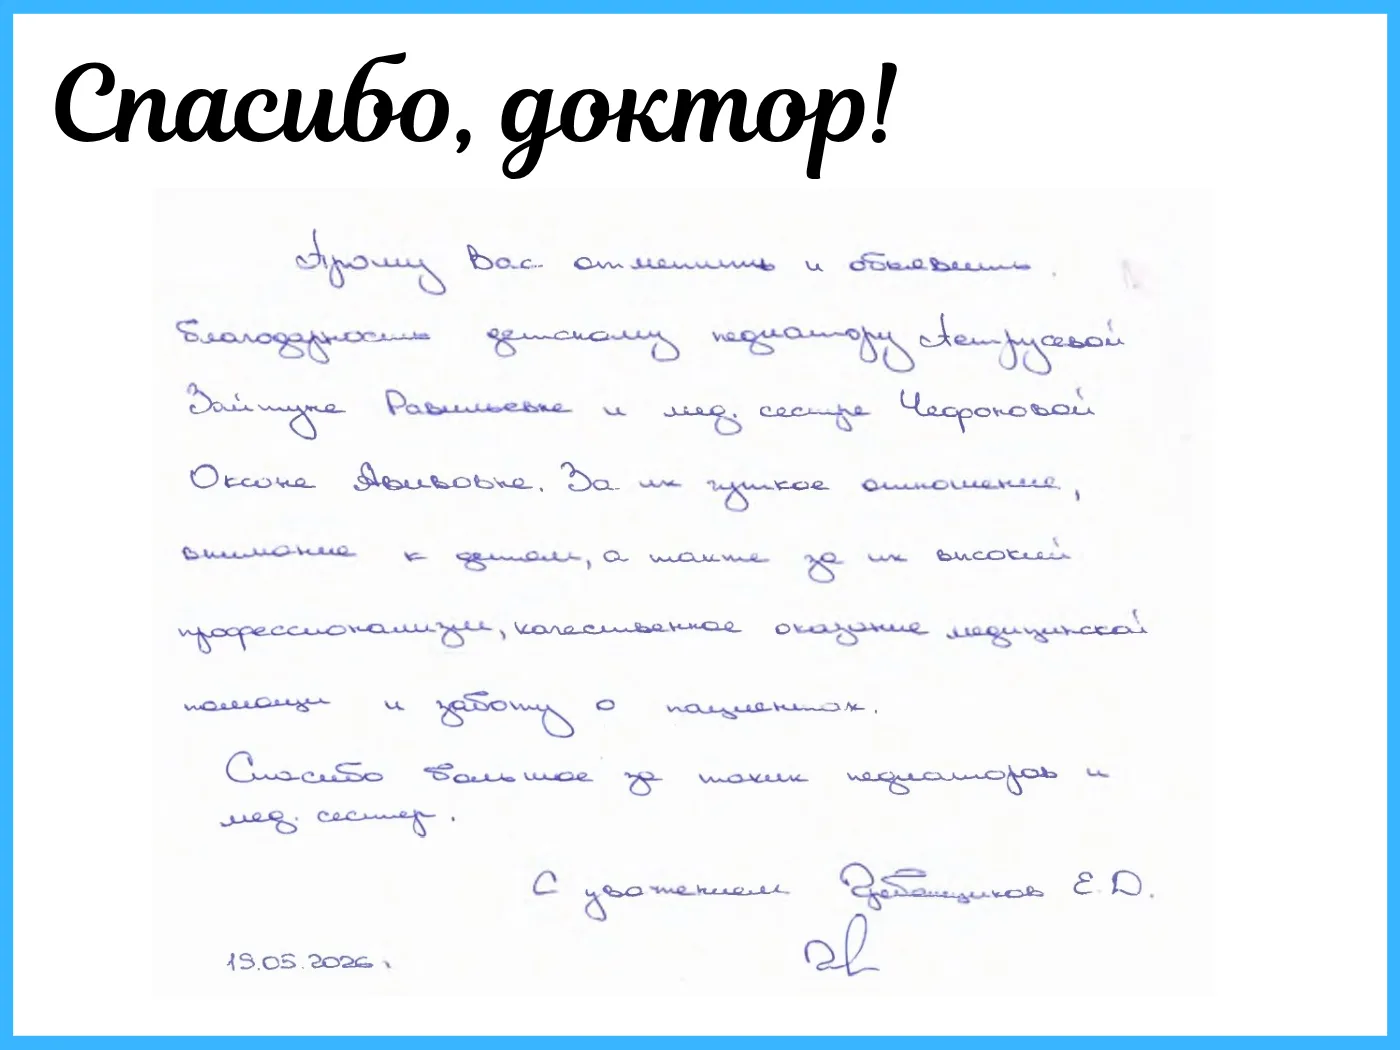 Спасибо, доктор!
Прошу Вас отметить и объявить
благодарность детскому педиатору
Зайтуне Равильевне и мед. сестре Чефоновой
Оксане Авивовне. За их чуткое отношение,
внимание к детям, а также за их высокий
профессионализм, качественное оказание медицинской
помощи и заботу о пациентах.
Спасибо большое за таких педиаторов и
мед. сестер.
С уважением Гребенщиков Е.Д.
19.05.2026г.